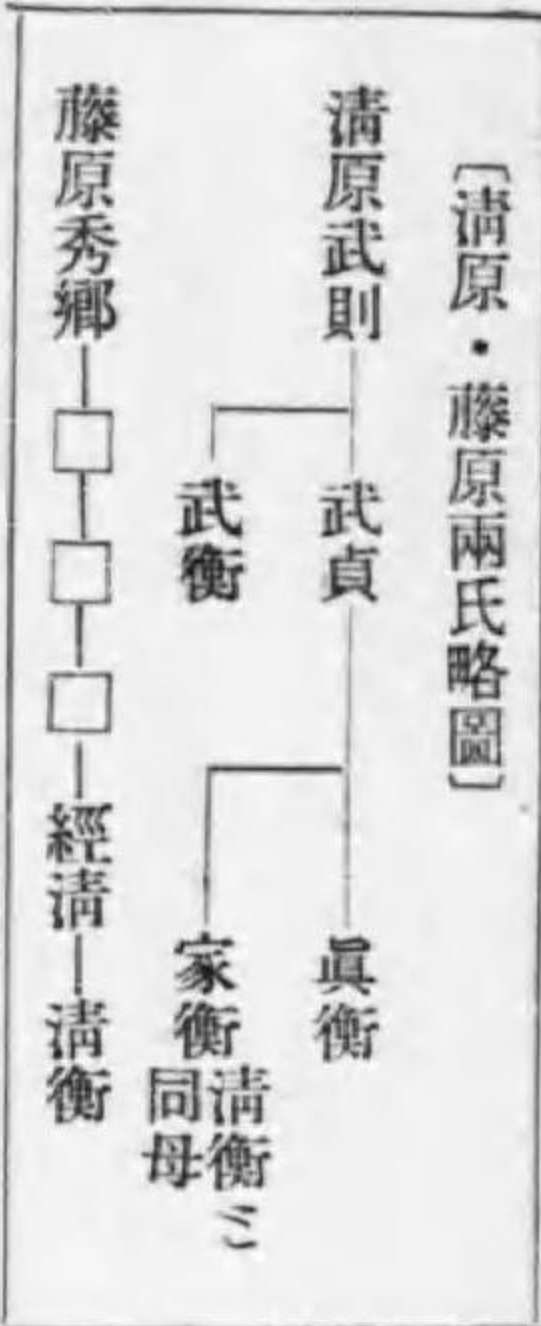 〔淸原・藤原兩氏略圖〕
淸原武則
武貞
眞衡
武衡
家衡
淸衡ミ
同母
藤原秀鄕―□―□―□―經淸―淸衡